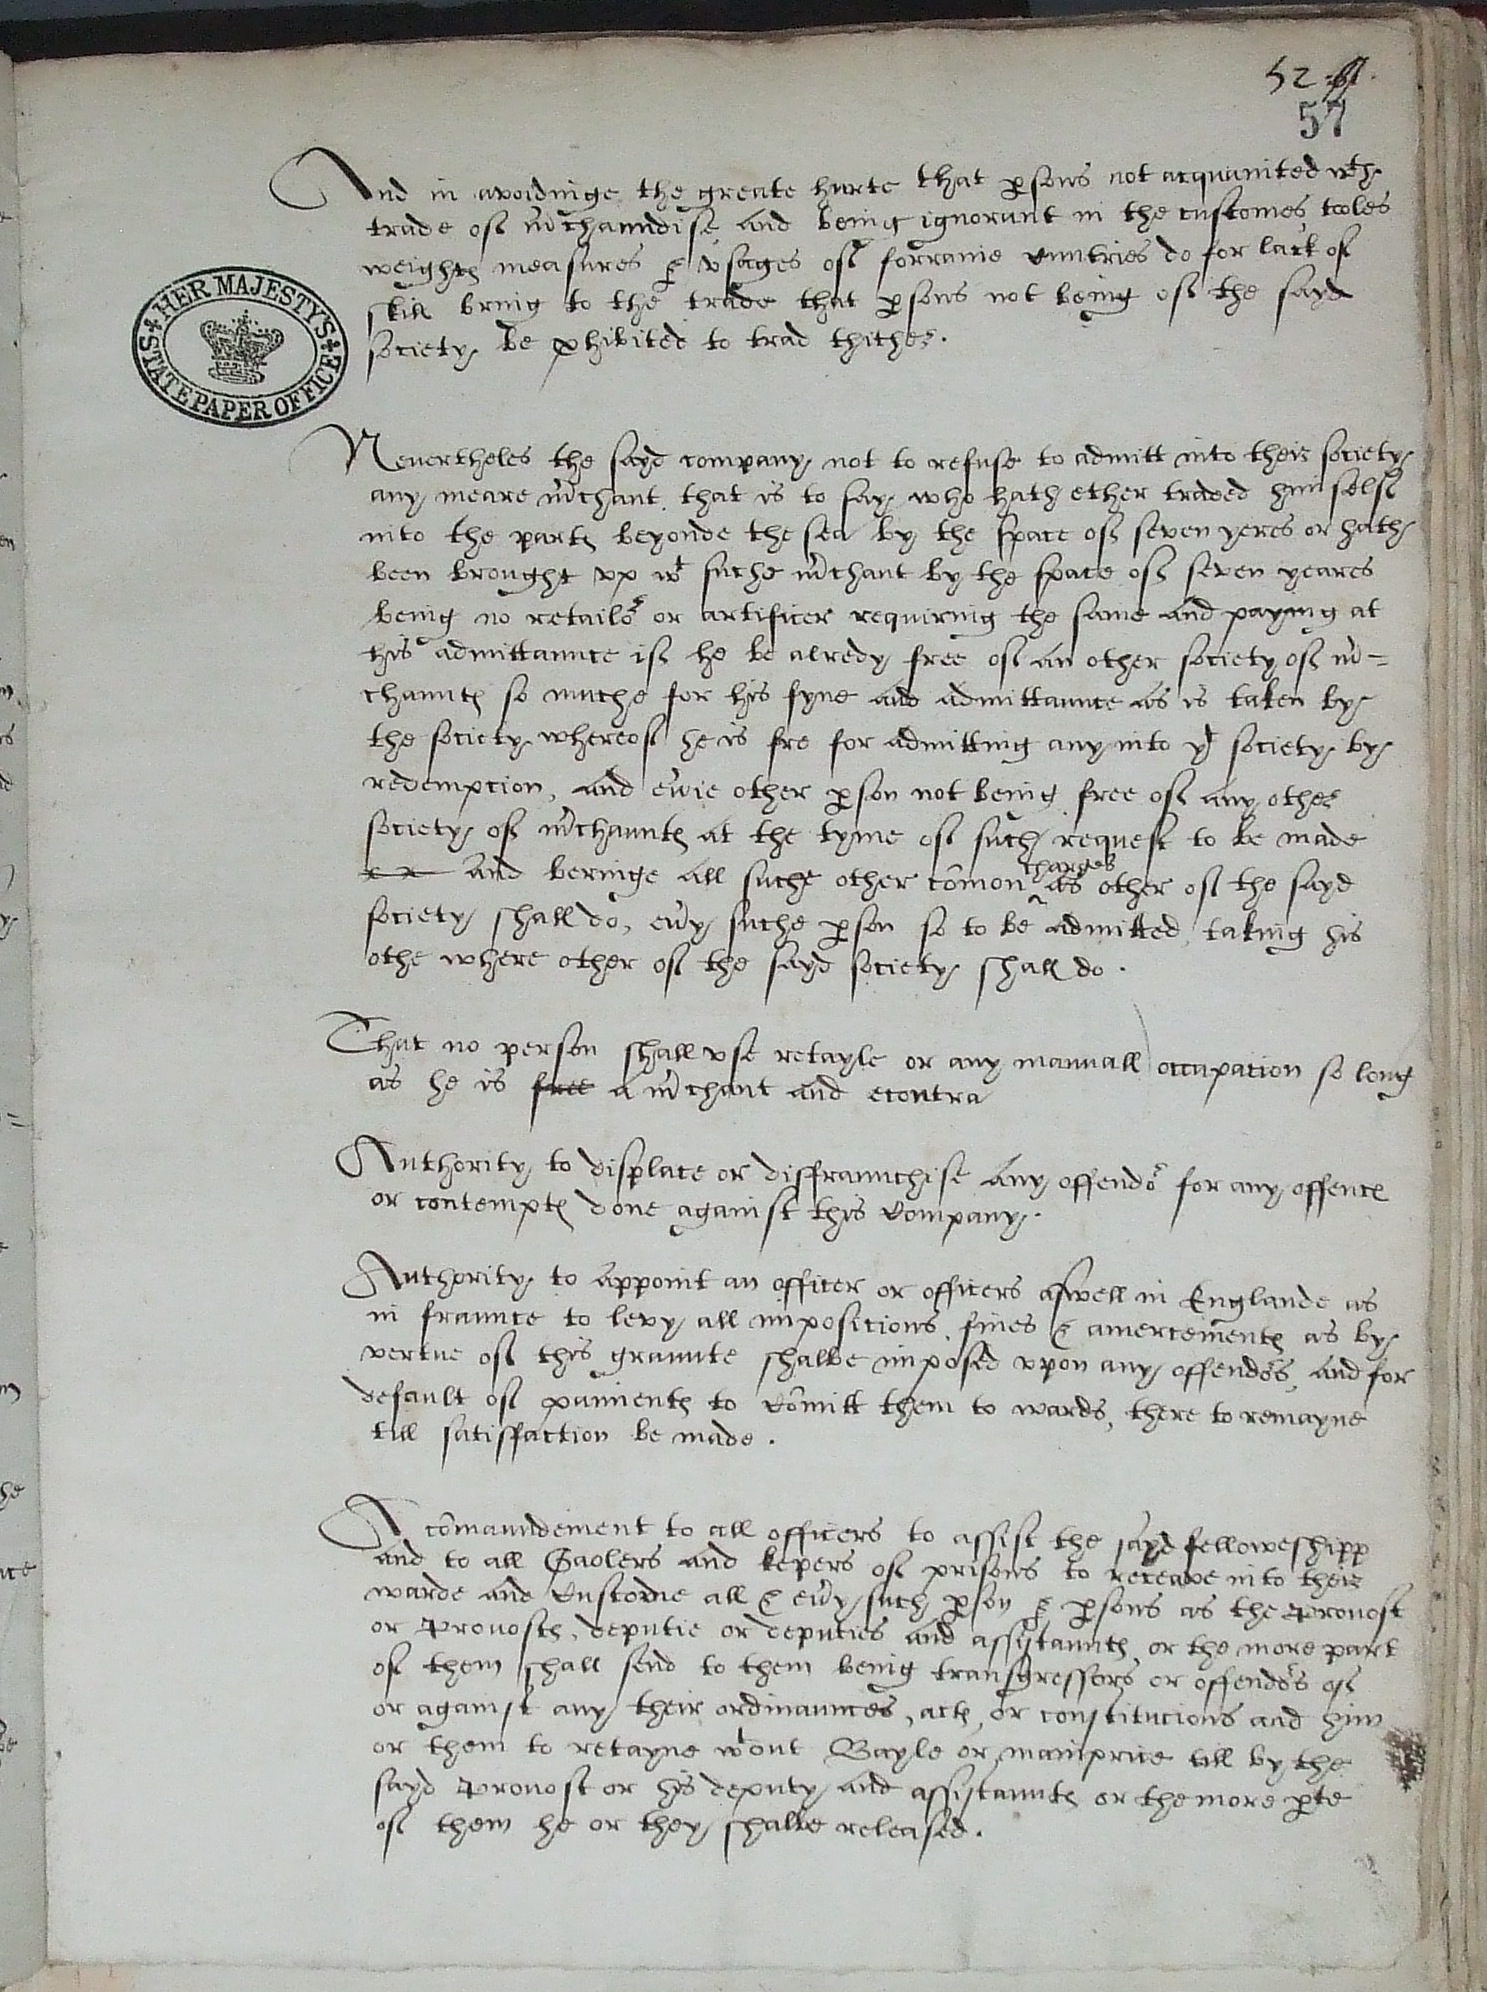 52
57
And in avoidinge the greate hurte that psons not acquainted wth
trade of mchaundise and being ignorant in the customes tooles
weightes measures & vsages of forraine Cuntries do for lack of
skill bring to the trade that psons not being of the sayd
society be phibited to trad thither.
HER MAJESTY'S STATE PAPER OFFICE
Nevertheles the sayd company not to refuse to admitt into their society
any meare mchant that is to say who hath ether traded him self
into the partes beyonde the sea by the space of seven yeres or hath
been brought vp wt suche mchant by the space of seven yeares
being no retailor or artificer requiring the same and paying at
his admittaunce if he be alredy free of an other society of m=
chauntes so muche for his fyne and admittaunce as is taken by
the society whereof he is fre for admitting any into yt society by
redemption, and evie other pson not being free of any other
society of mchauntes at the tyme of such request to be made
And beringe all suche other comon charges as other of the sayd
society shall do, evy suche pson so to be admitted taking his
othe where other of the sayd society shall do.
That no person shall vse retayle or any manuall occupation so long
as he is free a mchant and econtra
Authority to displace or disfraunchise any offendor for any offences
or contemptes done against this Company.
Authority to appoint an officer or officers aswell in Englande as
in fraunce to levy all impositions, fines & amercementes as by
vertue of this graunte shalbe imposed vpon any offendors, and for
default of paimentes to Comitt them to wards, there to remayne
till satisfaction be made.
A comaundement to all officers to assist the sayd felloweshipp
and to all Gaolers and kepers of prisons to receave into their
warde and Custodie all & evy such pson & psons as the Provost
or Provostes, deputie or deputies and assistauntes or the more part
of them shall send to them being transgressors or offendors of
or against any their ordinaunces, actes, or constitucions and him
or them to retayne wtout Bayle or mainprice till by the
sayd Provost or his deputy and assistauntes or the more pte
of them he or they shalbe released.